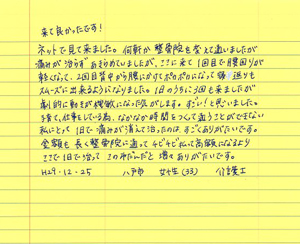 来て良かったです!
ネットで見て来ました。何軒か整骨院を変えて通いましたが
痛みが治らずあきらめていましたが、ここに来て1回目で腰回りが
軽くなって、2回目背中から腰にかけてポカポカになって寝返りも
スムーズに出来るようになりました。1日のうちに3回も来ましたが
劇的に動きが機敏になった気がします。すごい!と思いました。
子育て、仕事もしている為、なかなか時間をつくって通うことができない
私にとって1日で痛みが消えて治ったのは、すごくありがたいです。
金額も長く整骨院に通ってチビチビ払って高額になるより
ここで1日で治って このねだんだと 増々ありがたいです。
H29-12-25 八戸市 女性(33) 介護士